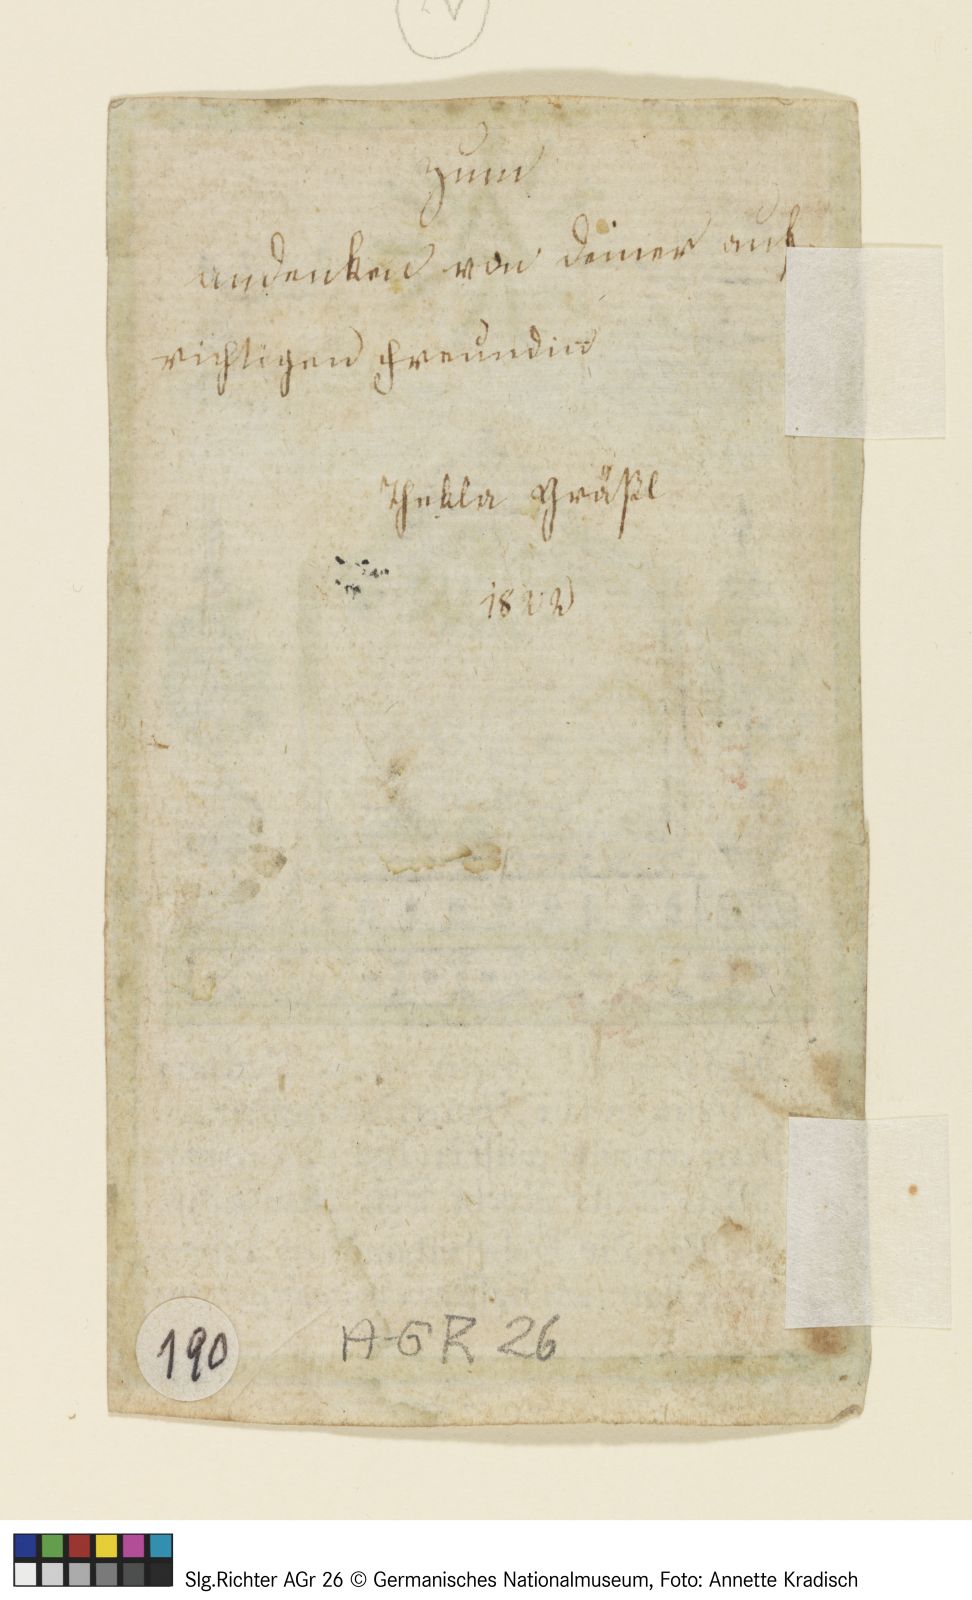 zum
andenken von deiner auf
richtigen freundin
Thekla Gräßl
1822
190
AGR 26
Slg.Richter AGr 26 © Germanisches Nationalmuseum, Foto: Annette Kradisch